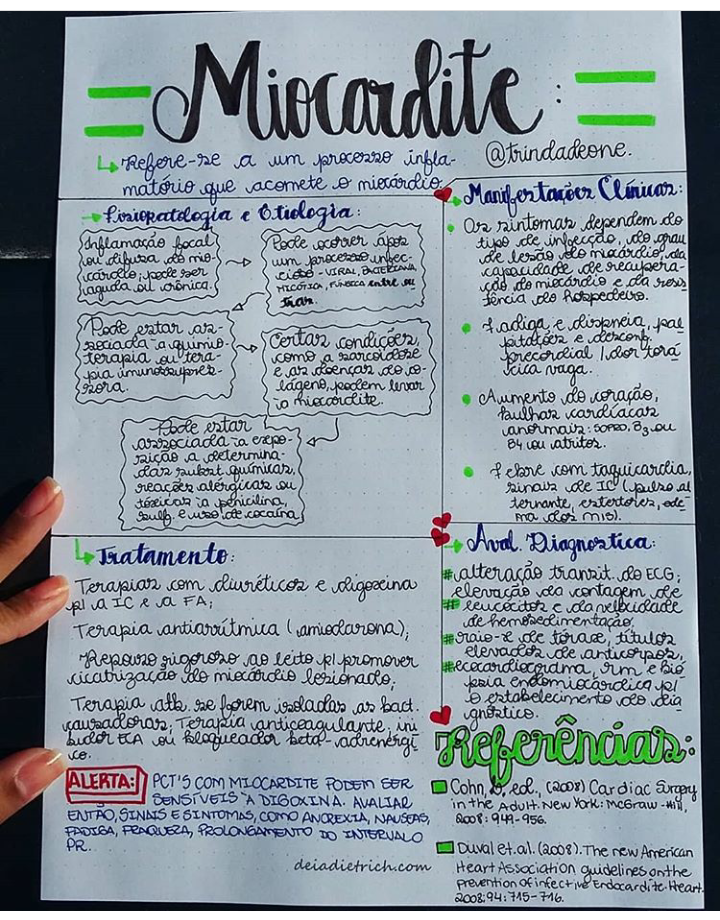 Miocardite:
@trindadeone.
Refere-se a um processo infla-
matório que acomete o miocárdio.
Fisiopatologia e Etiologia:
Inflamação focal
ou difusa do mio-
cárdio, pode ser
aguda ou crônica.
Pode ocorrer após
um processo infec-
cioso - VIRAL, BACTERIANA,
MICÓTICA, FÚNGICA entre ou
tras.
Pode estar as-
sociada a quimio-
terapia ou tera-
pia imunossupres-
sora.
Certas condições,
como a sarcoidose
e as doenças do co-
lágeno, podem levar
à miocardite.
Pode estar
associada à expo-
sição a determina-
das subst. químicas,
reações alérgicas ou
tóxicas à penicilina,
sulf. e uso de cocaína
Manifestações Clínicas:
Os sintomas dependem do
tipo de infecção, do grau
de lesão do miocárdio, da
capacidade de recupera-
ção do miocárdio e da resis
tência do hospedeiro.
Fadiga e dispneia, pal
pitações e desconf.
precordial / dor torá
cica vaga.
Aumento do coração,
bulhas cardíacas
anormais: SOPRO, B3 ou
B4 ou atritos.
Febre com taquicardia,
sinais de IC (pulso al
ternante, estertores, ede
ma dos mis).
Tratamento:
Terapias com diuréticos e digoxina
p/ a IC e a FA;
Terapia antiarrítmica (amiodarona);
Repouso rigoroso ao leito p/ promover
cicatrização do miocárdio lesionado;
Terapia atb. se forem isoladas as bact.
causadoras; Terapia anticoagulante, ini
bidor ECA ou bloqueador beta-adrenérgi
co.
ALERTA: PCT'S COM MIOCARDITE PODEM SER
SENSÍVEIS À DIGOXINA. AVALIAR
ENTÃO, SINAIS E SINTOMAS, COMO ANOREXIA, NAUSEAS,
FADIGA, FRAQUEZA, PROLONGAMENTO DO INTERVALO
PR.
deiadietrich.com
Aval. Diagnostica:
#alteração transit. do ECG;
elevação da contagem de
# leucócitos e da velocidade
de hemosedimentação;
#raio-x de tórax, títulos
elevados de anticorpos,
#ecocardiograma, rm e bió
psia endomiocárdica p/
o estabelecimento do dia
gnóstico.
Referências:
Cohn, ed., (2008) Cardiac Surgery
in the Adult. New York: McGraw-Hill,
2008: 949-956.
Duval et.al. (2008). The new American
Heart Association guidelines on the
prevention of infective Endocardite. Heart.
2008; 94: 715-716.